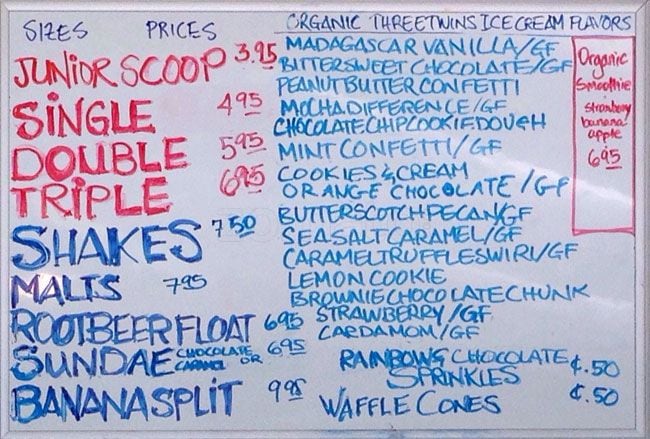 SIZES PRICES
JUNIOR SCOOP 3.95
SINGLE 4.95
DOUBLE 5.95
TRIPLE 6.95
SHAKES 7.50
MALTS 7.95
ROOTBEER FLOAT 6.95
SUNDAE CHOCOLATE OR CARAMEL 6.95
BANANA SPLIT 9.95
ORGANIC THREETWINS ICE CREAM FLAVORS
MADAGASCAR VANILLA/GF
BITTERSWEET CHOCOLATE/GF
PEANUT BUTTER CONFETTI
MOCHA DIFFERENCE/GF
CHOCOLATE CHIP COOKIE DOUGH
MINT CONFETTI/GF
COOKIES & CREAM
ORANGE CHOCOLATE/GF
BUTTERSCOTCH PECAN/GF
SEA SALT CARAMEL/GF
CARAMEL TRUFFLE SWIRL/GF
LEMON COOKIE
BROWNIE CHOCOLATE CHUNK
STRAWBERRY/GF
CARDAMOM/GF
RAINBOW & CHOCOLATE SPRINKLES ¢.50
WAFFLE CONES ¢.50
Organic
Smoothie
strawberry
banana
apple
6.95